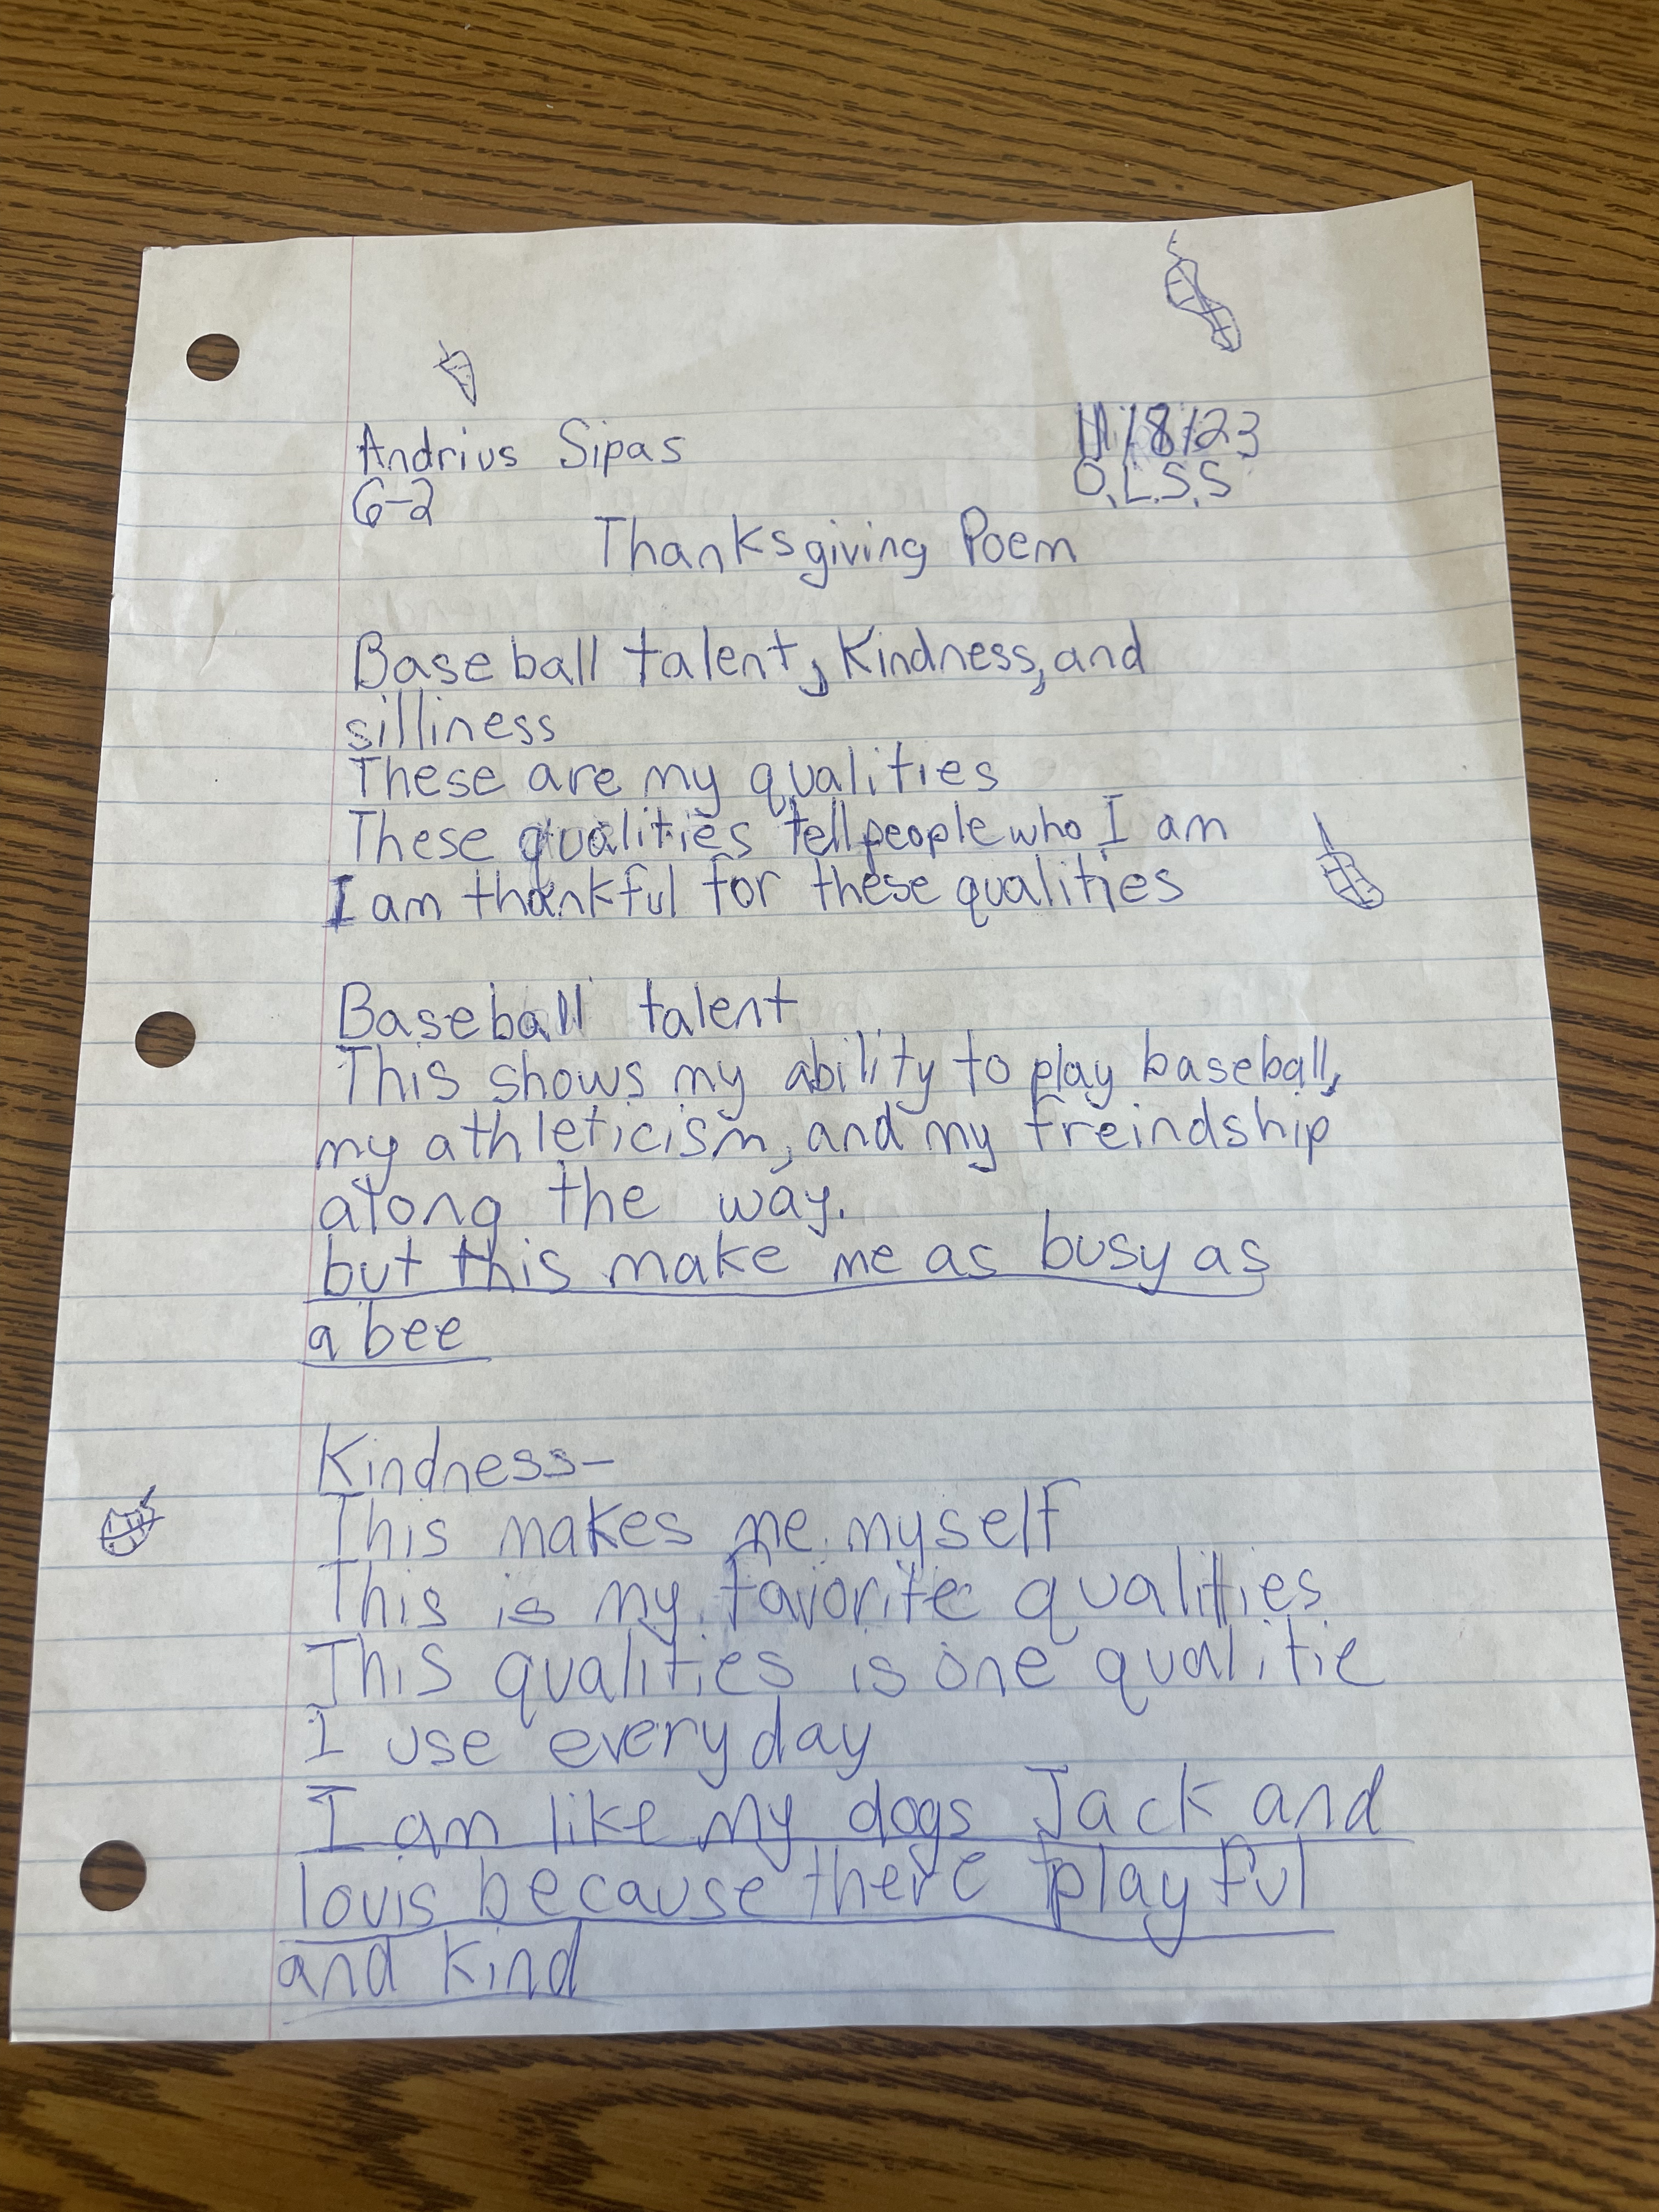 Andrius Sipas
11/8/23
6-2
O.L.S.S
Thanksgiving Poem
Baseball talent, Kindness, and
silliness
These are my qualities
These qualities tell people who I am
I am thankful for these qualities
Baseball talent
This shows my ability to play baseball,
my athleticism, and my freindship
along the way.
but this make me as busy as
a bee
Kindness-
This makes me myself
This is my favorite qualities
This qualities is one qualitie
I use everyday
I am like my dogs Jack and
louis because there playful
and kind